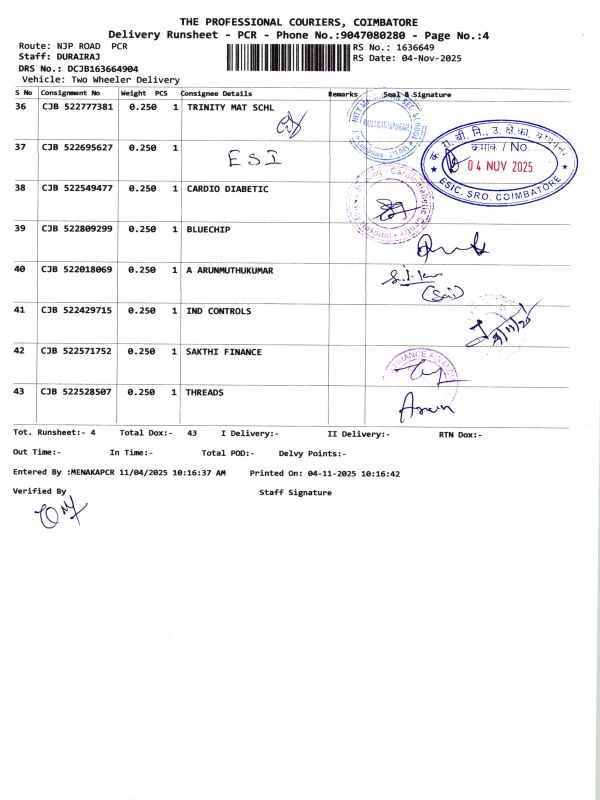 THE PROFESSIONAL COURIERS, COIMBATORE
Delivery Runsheet - PCR - Phone No.:9047080280 - Page No.:4
Route: NJP ROAD PCR RS No.: 1636649
Staff: DURAIRAJ RS Date: 04-Nov-2025
DRS No.: DCJB163664904
Vehicle: Two Wheeler Delivery
S No Consignment No Weight PCS Consignee Details Remarks Seal & Signature
36 CJB 522777381 0.250 1 TRINITY MAT SCHL
37 CJB 522695627 0.250 1 ESI
क्रमांक / No.
04 NOV 2025
ESIC, SRO, COIMBATORE
38 CJB 522549477 0.250 1 CARDIO DIABETIC
39 CJB 522809299 0.250 1 BLUECHIP
40 CJB 522018069 0.250 1 A ARUNMUTHUKUMAR
41 CJB 522429715 0.250 1 IND CONTROLS
42 CJB 522571752 0.250 1 SAKTHI FINANCE
43 CJB 522528507 0.250 1 THREADS
Tot. Runsheet:- 4 Total Dox:- 43 I Delivery:- II Delivery:- RTN Dox:-
Out Time:- In Time:- Total POD:- Delvy Points:-
Entered By :MENAKAPCR 11/04/2025 10:16:37 AM Printed On: 04-11-2025 10:16:42
Verified By Staff Signature